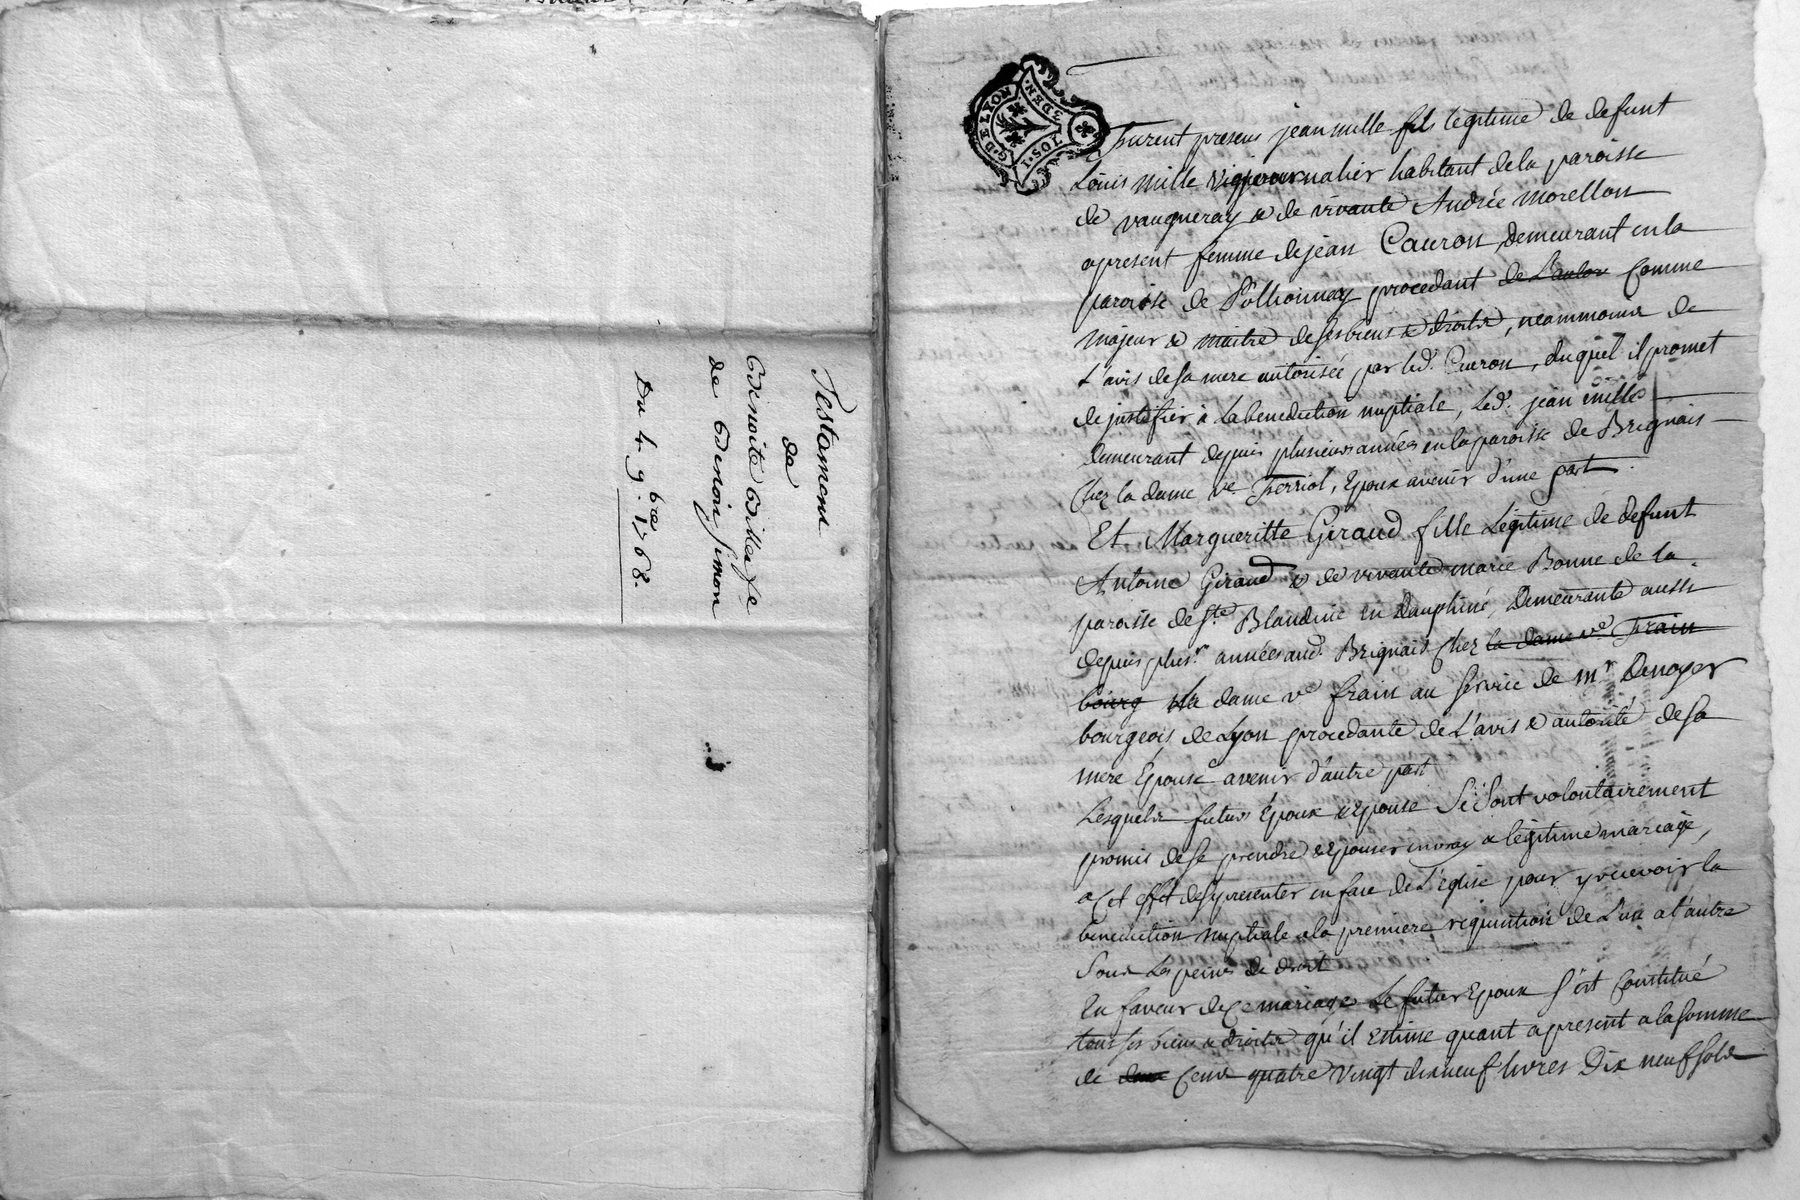 Testament
de
Benoite Billey fe
de Benoit Simon
Du 4 9.bre 1768.
G. DE LYON
I. SOL 3 DEN.
Furent presens jean mille fils legitime de defunt
Louis mille journalier habitant de la paroisse
de vaugneray & de vivante Andrée morellon
apresent femme de jean Caeron demeurant en la
paroisse de Pollionnay procedant de L'autor Comme
majeur & maitre de ses biens & droits, neammoins de
L'avis de sa mere autorisée par led. Caeron, duquel il promet
de justifier a La benediction nuptiale, Led. jean mille
demeurant depuis plusieurs années en la paroisse de Brignais
Chez la dame ve Ferriol, Epoux avenir d'une part.
Et Margueritte Giraud fille Legitime de defunt
Antoine Giraud & de vivante marie Bonne de la
paroisse de Ste Blandine en dauphiné, Demeurante aussi
depuis plusrs années aud. Brignais Chez la dame ve Frain
bourg La dame ve frain au service de mr Denoyer
bourgeois de Lyon procedante de L'avis & autorité de sa
mere Epouse avenir d'autre part
Lesquels futurs Epoux & Epouse Se Sont volontairement
promis de se prendre & Epouser en vray & legitime mariage,
a Cet effet de se presenter en face de L'eglise pour y recevoir la
benediction nuptiale a la premiere requisition de L'un a l'autre
Sous Les peines de droit
En faveur de Ce mariage Le futur Epoux S'est Constitué
tous ses biens & droits qu'il Estime quant a present a la somme
de deux Cens quatre vingt dixneuf livres Dix neuf sols